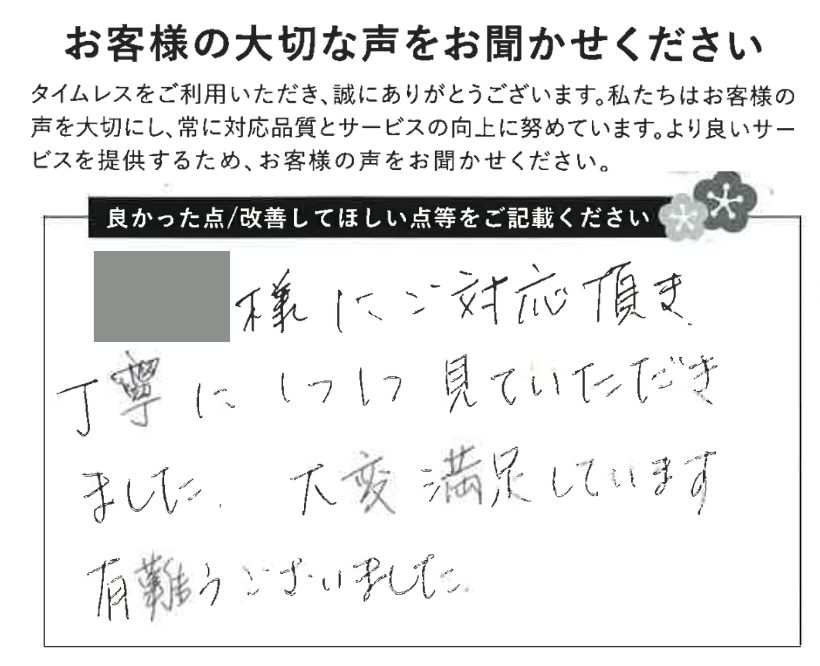 お客様の大切な声をお聞かせください
タイムレスをご利用いただき、誠にありがとうございます。私たちはお客様の
声を大切にし、常に対応品質とサービスの向上に努めています。より良いサー
ビスを提供するため、お客様の声をお聞かせください。
良かった点/改善してほしい点等をご記載ください
様にご対応頂き
丁寧に1つ1つ見ていただき
ました。大変満足しています
有難うございました。